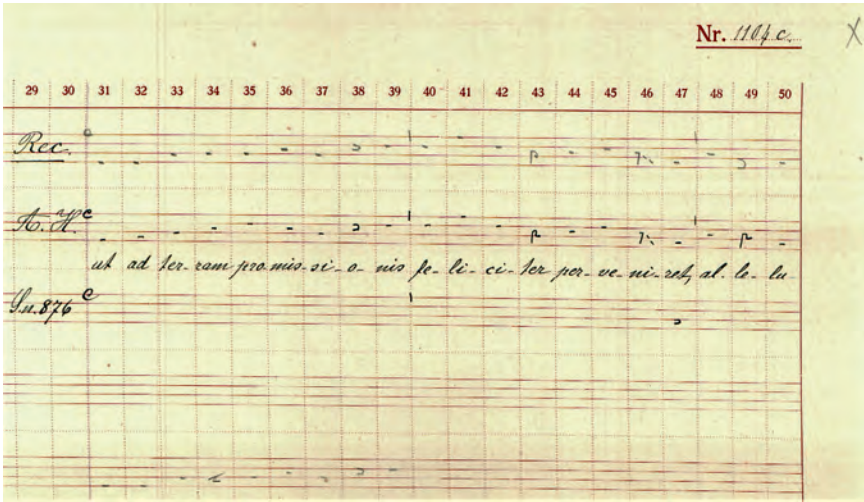 Nr. 1104 c.
X
29 30 31 32 33 34 35 36 37 38 39 40 41 42 43 44 45 46 47 48 49 50
Rec. c
A. H. c
ut ad ter- ram pro mis- si- o- nis fe- li- ci- ter per- ve- ni- ret, al- le- lu
S.n. 876 c